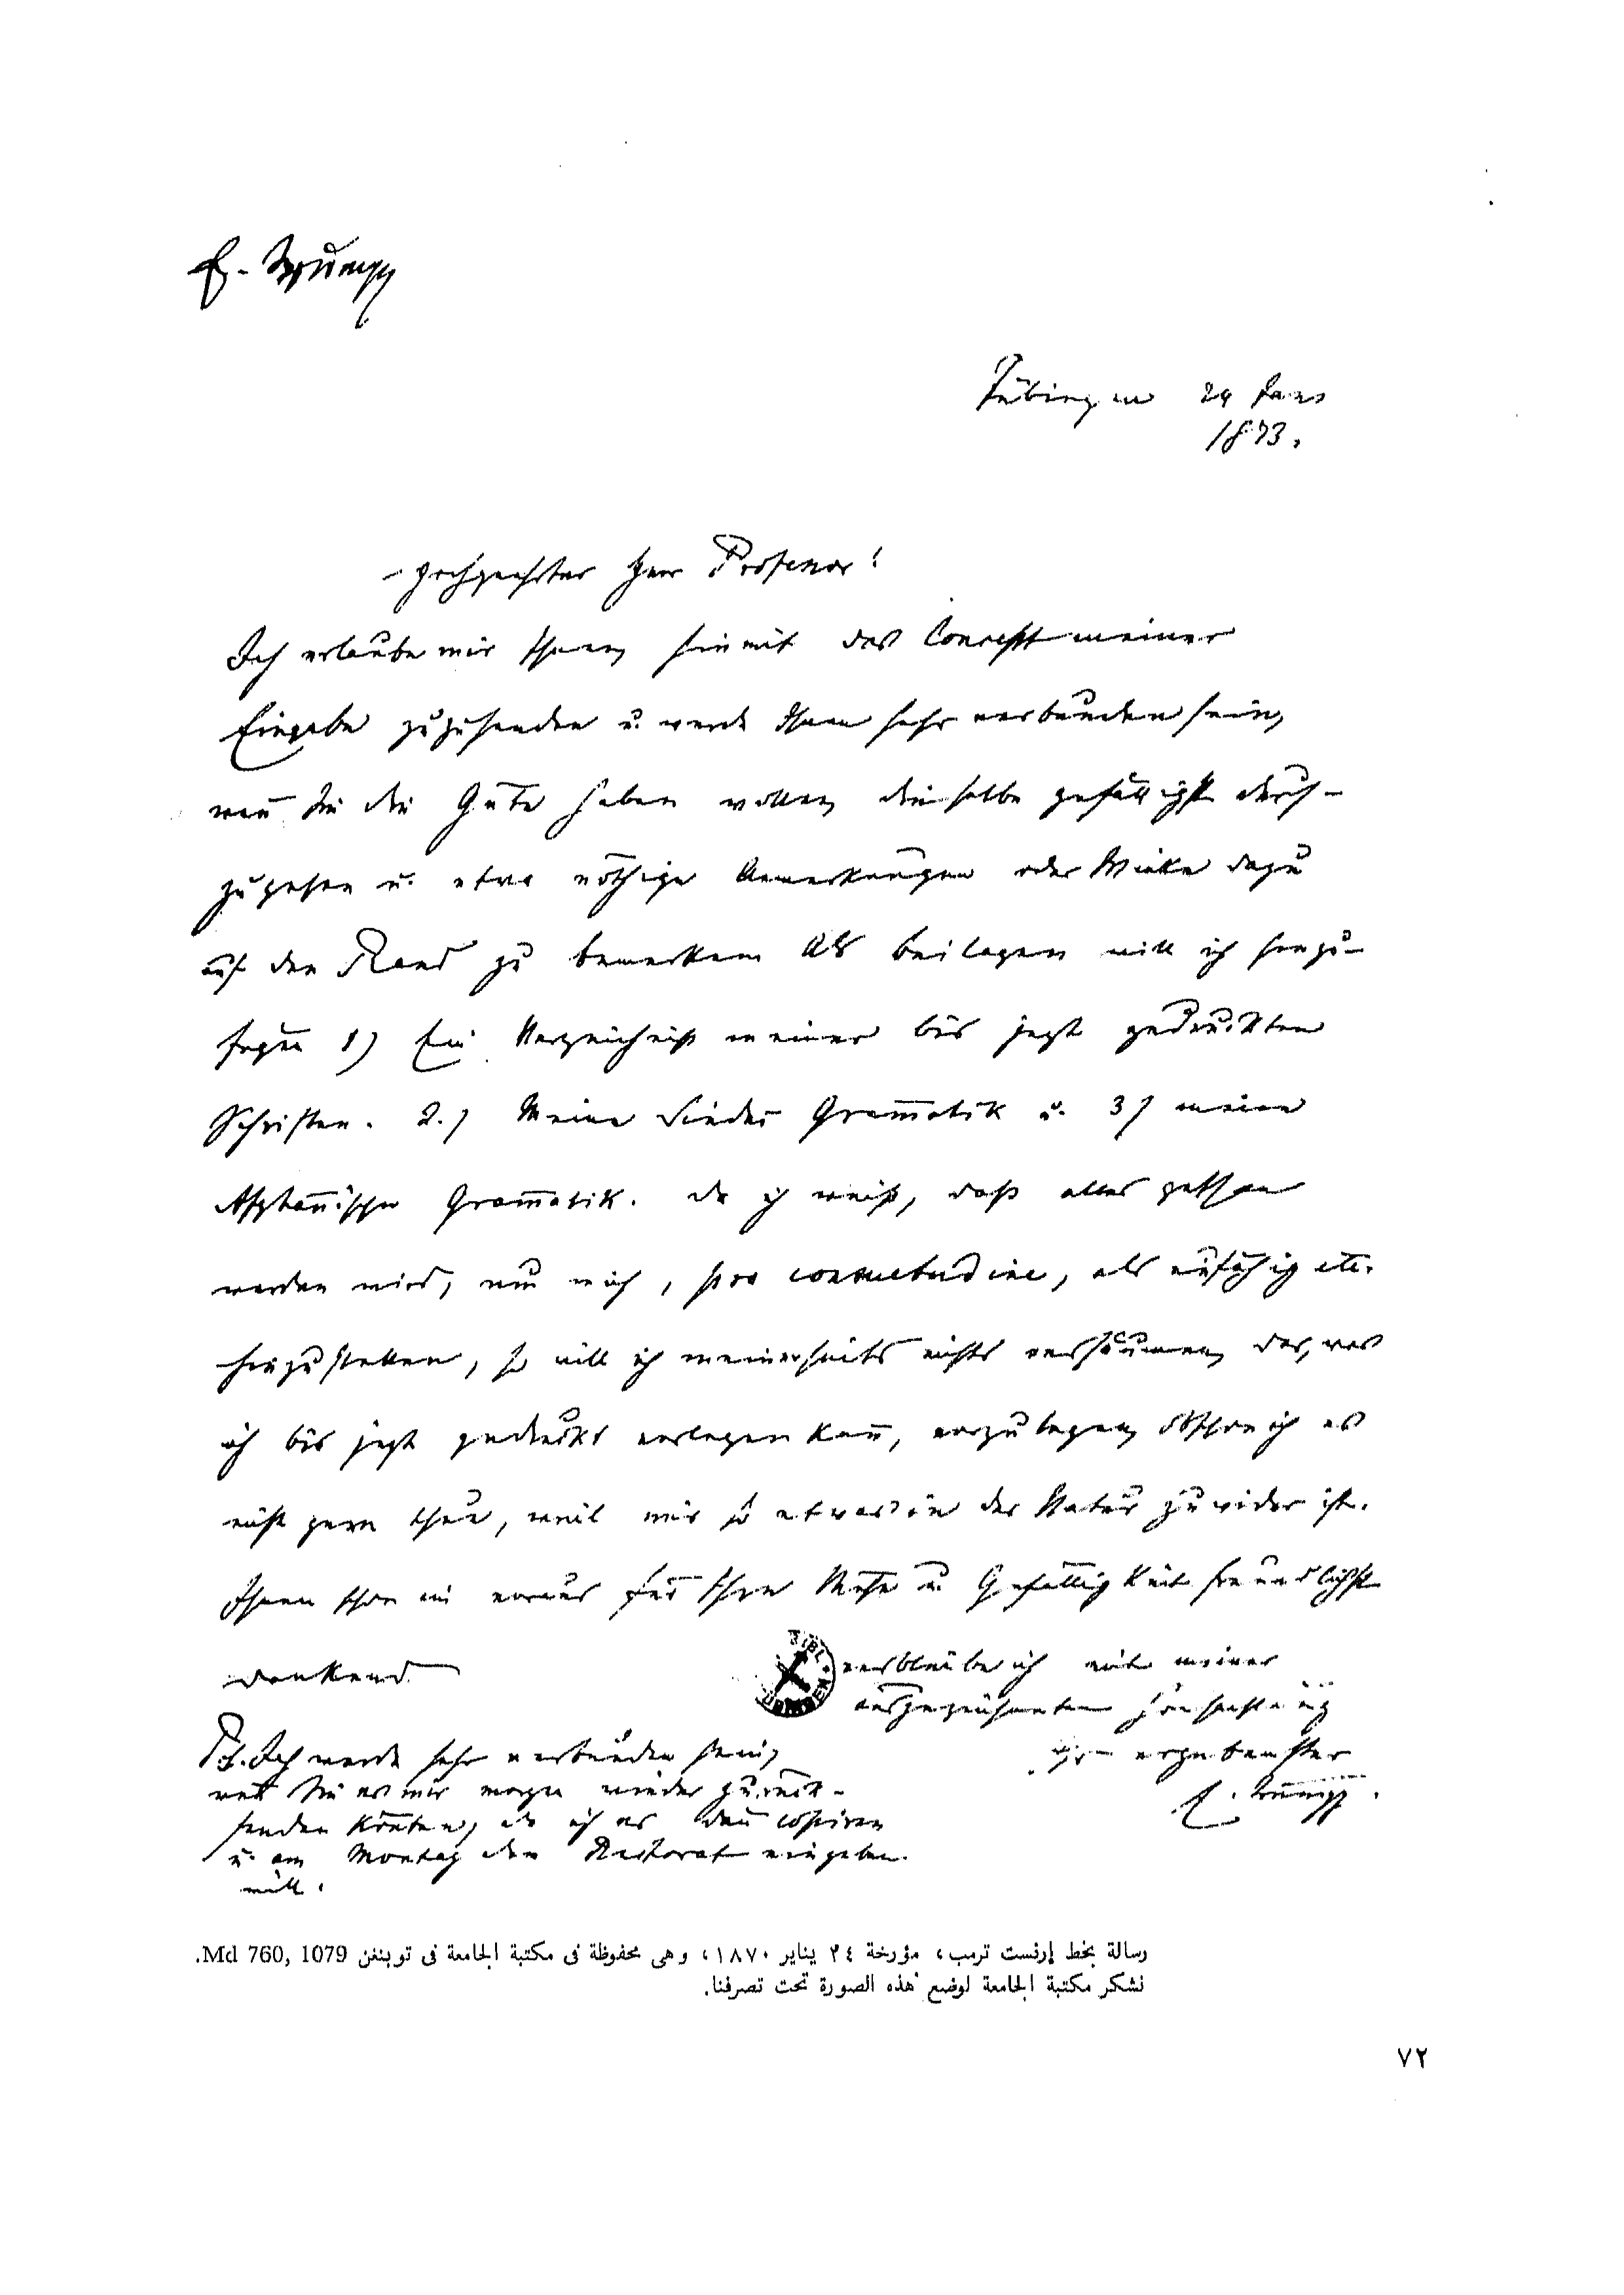 E. Trumpp
Tübingen 24 Jan.
1873.
Hochgeehrter Herr Professor!
Ich erlaube mir Ihnen hiemit das Concept meiner
Eingabe zuzusenden u. werde Ihnen sehr verbunden sein,
wen̄ Sie die Güte haben wollen, dieselbe gefälligst durch-
zugehen u. etwa nöthige Anmerkungen oder Winke dazu
auf den Rand zu bemerken. Als Beilagen will ich hinzu-
fügen 1) Ein Verzeichniß meiner bis jezt gedruckten
Schriften. 2.) Meine Sindhi Gram̄atik u. 3) meine
Afghanische Gram̄atik. Da ich weiß, daß alles gethan
werden wird, um mich, pro consuetudine, als unfähig etc.
hinzustellen, so will ich meinerseits nichts versäumen, das, was
ich bis jezt gedruckt vorlegen kan̄, vorzulegen, obschon ich es
nicht gern thue, weil mir so etwas in der Natur zuwider ist.
Ihnen schon im voraus für Ihre Mühe u. Gefälligkeit freundlichst
dankend
verbleibe ich mit meiner
ausgezeichneten Hochachtung
Ihr ergebenster
E. Trumpp.
PS. Ich werde sehr verbunden sein,
wen̄ Sie es mir morgen wieder zurück-
senden kön̄ten, da ich es dan̄ copiren
u. am Montag dem Rectorat eingeben
will.
رسالة بخط إرنست ترمب، مؤرخة ٢٤ يناير ١٨٧٠، وهى محفوظة فى مكتبة الجامعة فى توبنغن Md 760, 1079.
نشكر مكتبة الجامعة لوضع هذه الصورة تحت تصرفنا.
٧٢